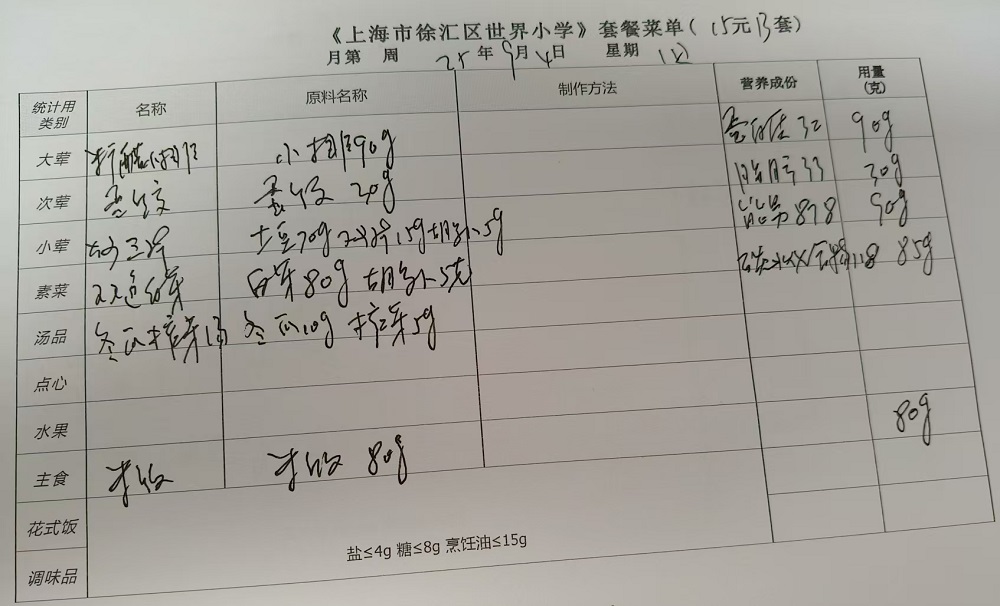 《上海市徐汇区世界小学》套餐菜单(15元B套)
月第 周 25年9月4日 星期四
统计用类别 名称 原料名称 制作方法 营养成份 用量(克)
大荤 小排90g 蛋白质32 90g
次荤 蛋饺 蛋饺 30g 脂肪33 30g
小荤 土豆70g 胡萝卜5g 能量898 90g
素菜 白芽80g 胡萝卜5克 碳水化合物118 85g
汤品 冬瓜榨菜汤 冬瓜10g 榨菜5g
点心
水果 80g
主食 米饭 米饭 80g
花式饭
调味品 盐≤4g 糖≤8g 烹饪油≤15g